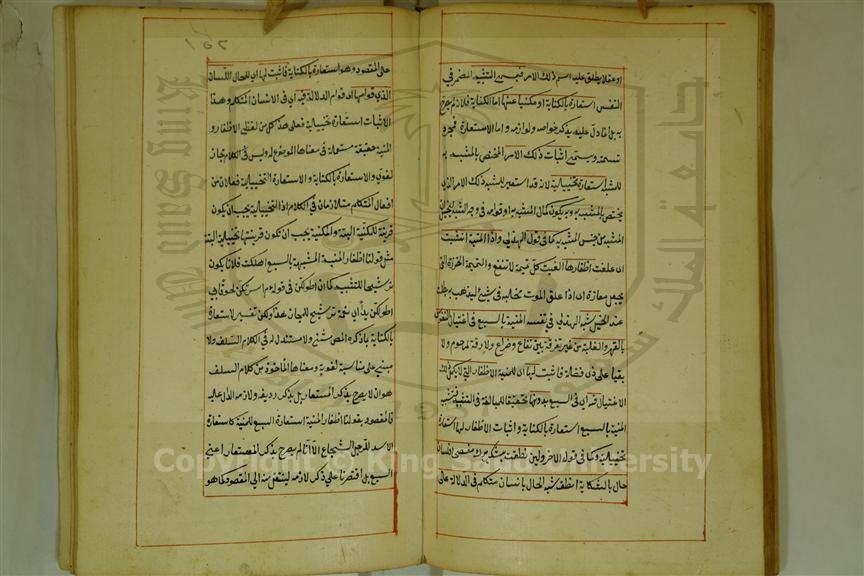 او عقلا يطلق عليه اسم ذلك الامر فيسمى التشبيه المضمر في
النفس استعارة بالكناية او مكنيا عنها اما الكناية فلانه لم يصرح
به بل انما دل عليه بذكر خواصه ولوازمه واما الاستعارة فمجرد
تسمية ويسمى اثبات ذلك الامر المختص بالمشبه به
للمشبه استعارة تخييلية لانه قد استعير للمشبه ذلك الامر الذي
يختص بالمشبه به وبه يكون كمال المشبه به او قوامه في وجه الشبه ليخيل ان
المشبه من جنس المشبه به كما في قول الهذلي واذا المنية انشبت
اي علقت اظفارها الفيت كل تميمة لا تنفع والتميمة الخرزة التي
يجعل معاذة اي اذا علق الموت مخلبه في شيئ ليذهب به بطلت
عنده الحيل شبه الهذلي في نفسه المنية بالسبع في اغتيال النفوس
بالقهر والغلبة من غير تفرقة بين نفاع وضرار ولا رقة لمرحوم ولا
بقيا على ذي فضيلة فاثبت لها اي للمنية الاظفار التي لا يكمل ذلك
الاغتيال فيه اي في السبع بدونها تحقيقا للمبالغة في التشبيه فتشبيه
المنية بالسبع استعارة بالكناية واثبات الاظفار لها استعارة
تخييلية وكما في قول الاخر ولئن نطقت بشكر برك مفصحا فلسان
حالي بالشكاية انطق شبه الحال بانسان متكلم في الدلالة على
١٥٢
على المقصود وهو استعارة بالكناية فاثبت لها اي للحال اللسان
الذي قوامها اي قوام الدلالة فيه اي في الانسان المتكلم وهذا
الاثبات استعارة تخييلية فعلى هذا كل من لفظي الاظفار و
المنية حقيقة مستعملة في معناها الموضوع له وليس في الكلام مجاز
لغوي والاستعارة بالكناية والاستعارة التخييلية فعلان من
افعال المتكلم متلازمان في الكلام اذ التخييلية يجب ان يكون
قرينة للمكنية البتة والمكنية يجب ان تكون قرينتها تخييلية البتة
مثل قولنا اظفار المنية المشبهة بالسبع اهلكت فلانا يكون
ترشيحا للتشبيه كما ان اطولكن في قوله عم اسرعكن لحوقا بي
اطولكن يدا اي نعمة ترشيح للمجاز هذا ولكن تفسير الاستعارة
بالكناية بما ذكره المص شئ لا مستند له في كلام السلف ولا
مبني على مناسبة لغوية ومعناها المأخوذ من كلام السلف
هو ان لا يصرح بذكر المستعار بل بذكر رديفه ولازمه الدال عليه
فالمقصود بقولنا اظفار المنية استعارة السبع للمنية كاستعارة
الاسد للرجل الشجاع الا انا لم يصرح بذكر المستعار اعني
السبع بل اقتصرنا على ذكر لازمه لينتقل منه الى المقصود كما هو